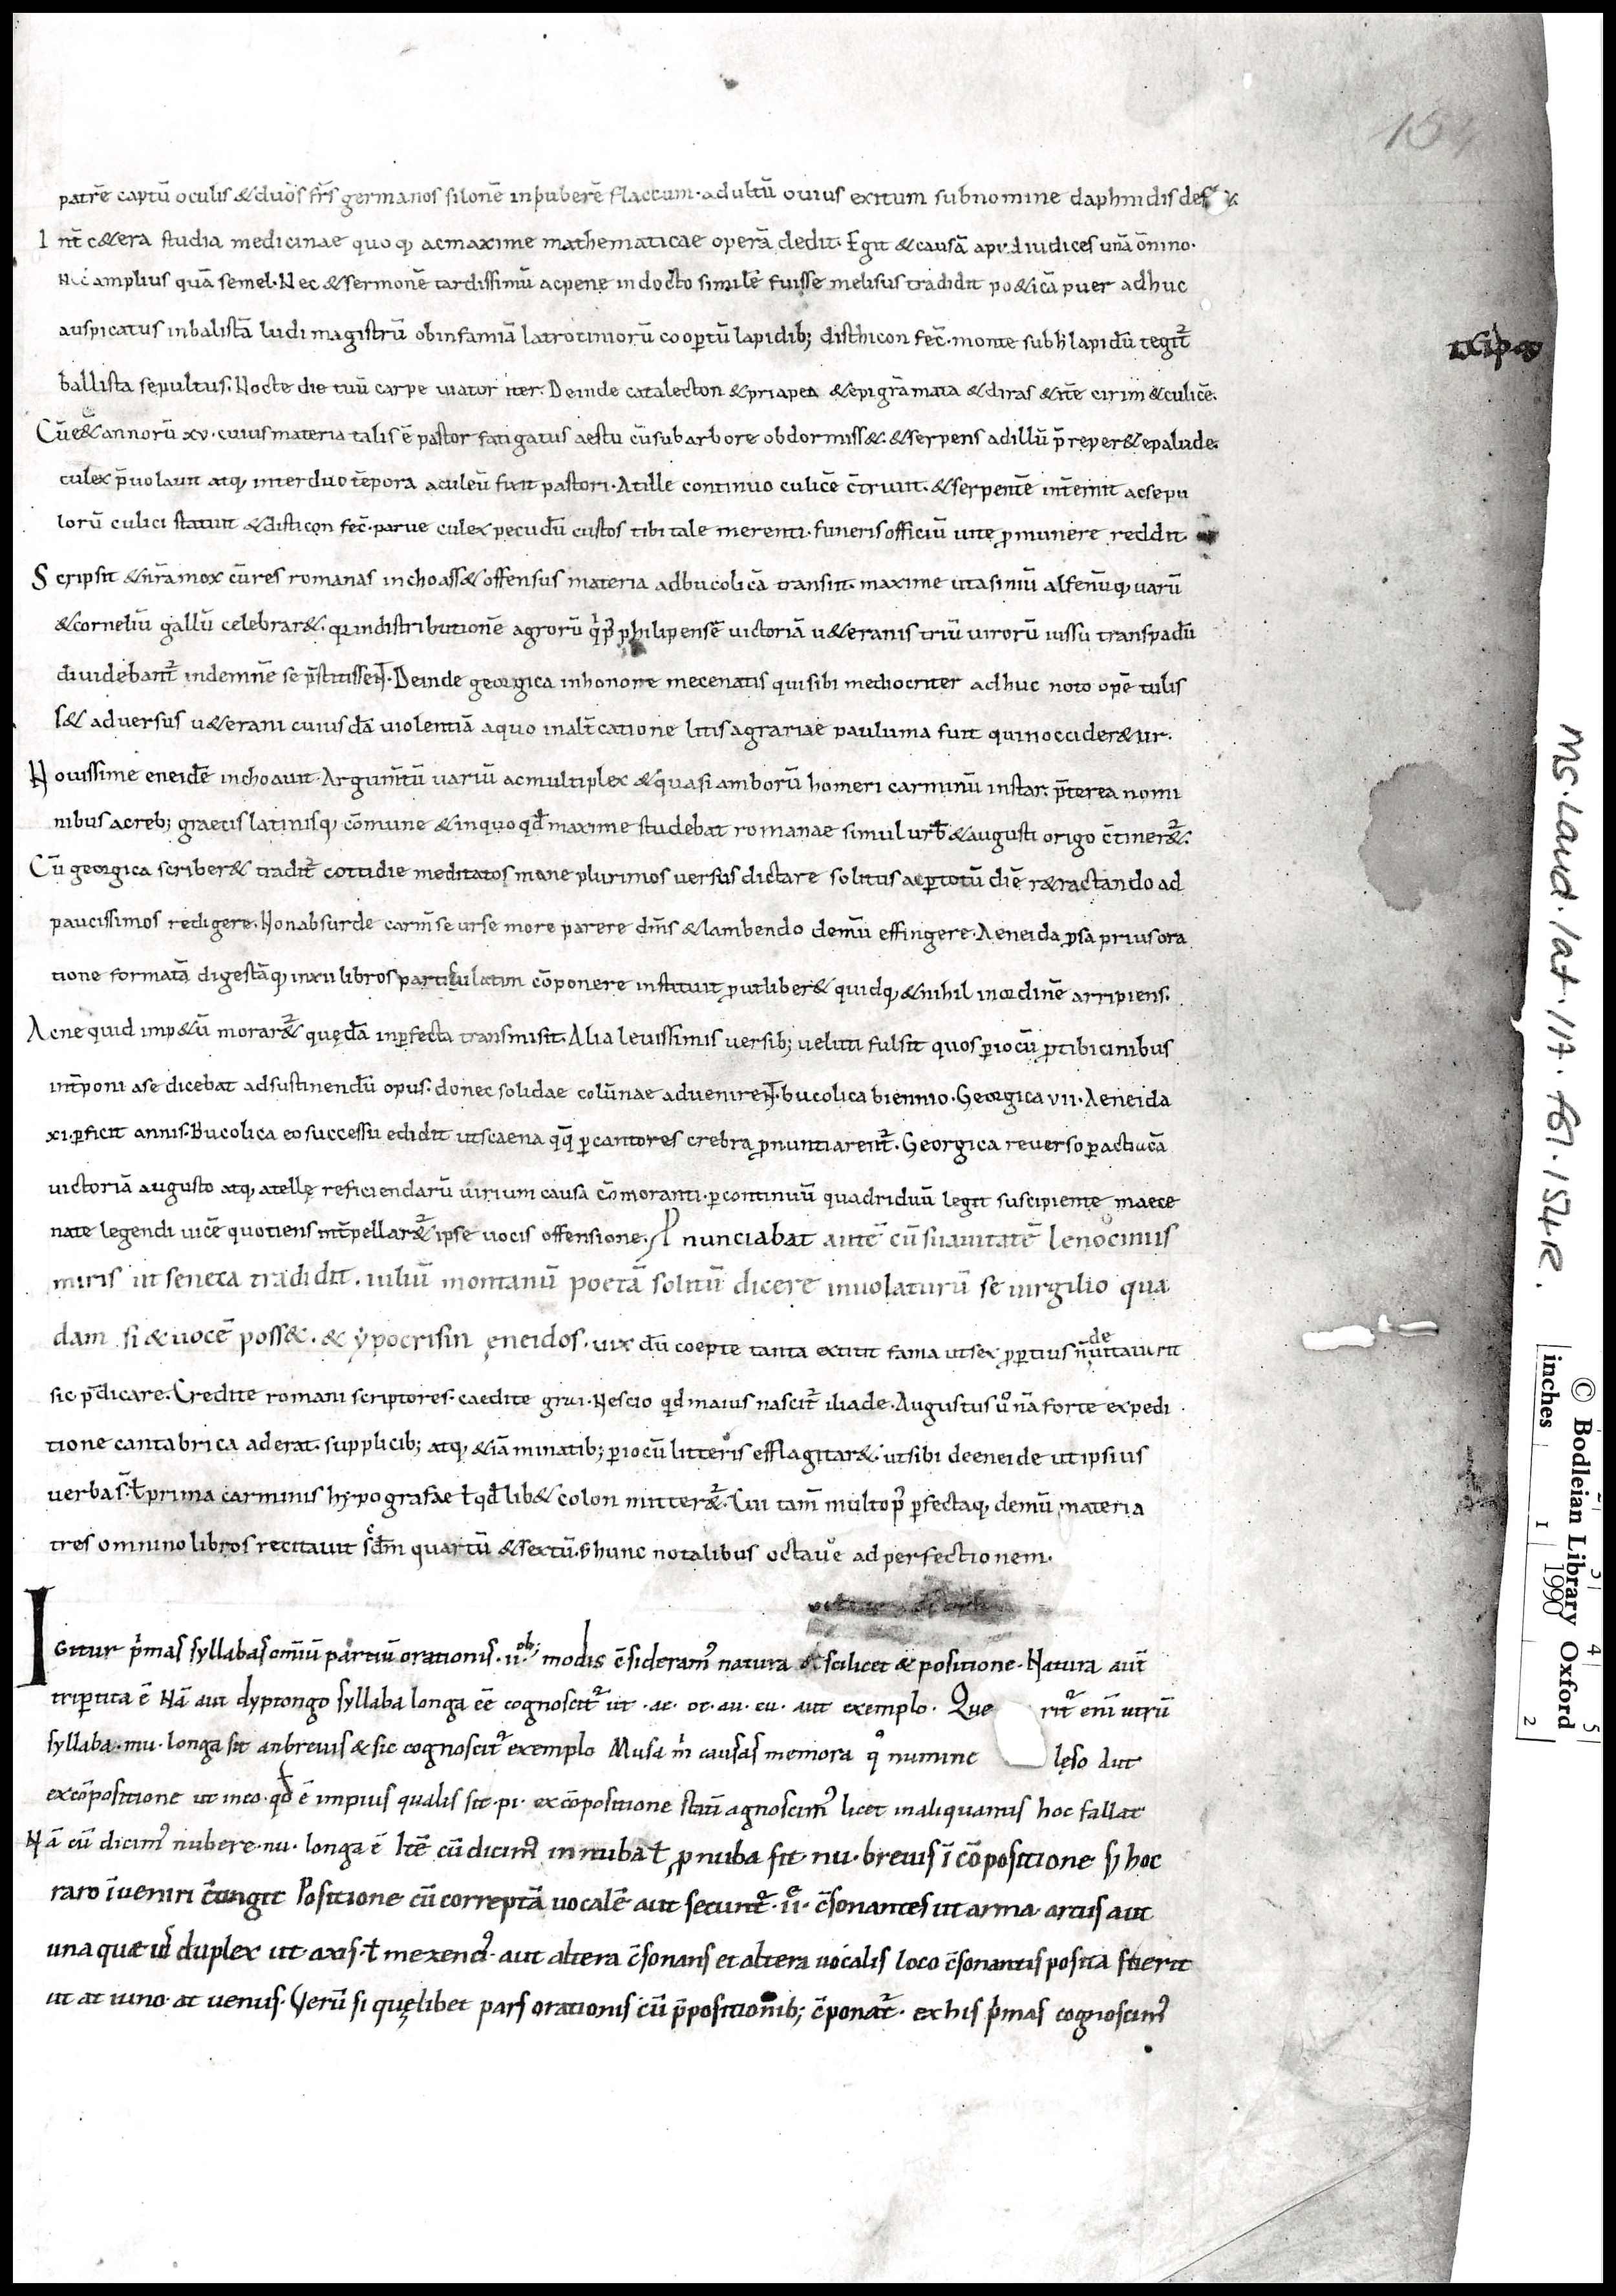 154
patrē captū oculis & duos fr̄s germanos silonē inpuberē flaccum · adultū ouius exitum sub nomine daphnidis def
Int̄ c&era studia medicinae quoq; ac maxime mathematicae operā dedit. Egit & causā apud iudices unā ōnino.
Nec amplius quā semel. Nec & sermonē tardissimū ac pene indocto similē fuisse melisus tradidit po&icā puer adhuc
auspicatus in balistā ludi magistrū ob infamiā latrociniorū coop̄tū lapidib; disthicon fec̄. monte sub h̄ lapidū tegit̄
ballista sepultus. Nocte die tuū carpe uiator iter. Deinde catalecton & priapea & epigrāmata & diras & itē cirim & culicē.
Cū e& annorū xv. cuius materia talis ē pastor fatigatus aestu cū sub arbore obdormiss&. & serpens ad illū p̄reper& e palude.
culex p̄uolauit atq; inter duo tēpora aculeū fixit pastori. At ille continuo culicē c̄triuit. & serpentē int̄emit ac sepu
lcrū culici statuit & disticon fec̄. parue culex pecudū custos tibi tale merenti. funeris officiū uite p munere reddit.
Scripsit & nr̄a mox cū res romanas inchoass& offensus materia ad bucolicā transiit. maxime ut asiniū alfenūq; uarū
& corneliū gallū celebrar&. q̄ in distributionē agrorū q̄ p̄ philipensē uictoriā u&eranis triū uirorū iussu transpadū
diuidebant̄ indemnē se p̄stitissent. Deinde georgica in honore mecenatis qui sibi mediocriter adhuc noto opē tulis
s& aduersus u&erani cuiusdā uiolentiā a quo in alt̄catione litis agrariae paulum afuit quin occider&ur.
Nouissime eneidē inchoauit. Argum̄tū uariū ac multiplex & quasi amborū homeri carminū instar. p̄terea nomi
nibus ac reb; graecis latinisq; cōmune & in quo qd̄ maxime studebat romanae simul urb̄ & augusti origo c̄tiner&.
Cū georgica scriber& tradit̄ cottidie meditatos mane plurimos uersus dictare solitus ac p̄ totū diē r&ractando ad
paucissimos redigere. Non absurde carm̄ se urse more parere dīns & lambendo demū effingere. Aeneida p̄sa prius ora
tione formatā digestāq; in xii libros particulatim cōponere instituit p̄ut liber& quidq; & nihil in ordinē arripiens.
Ac ne quid imp&ū morar& quędā inp̄fecta transmisit. Alia leuissimis uersib; ueluti fulsit quos p̄ iocū p̄ tibicinibus
int̄poni a se dicebat ad sustinendū opus. donec solidae colūnae aduenirent. bucolica biennio. Georgica vii. Aeneida
xi. p̄ficit annis. Bucolica eo successu edidit ut scaena q̄q̄ p̄ cantores crebra p̄nuntiarent̄. Georgica reuerso p̄ actiacā
uictoriā augusto atq; atellę reficiendarū uirium causa cōmoranti. p̄ continuū quadriduū legit suscipiente maece
nate legendi uicē quotiens int̄pellar& ipse uocis offensione. P̄nunciabat autē cū suauitatē lenociniis
miris ut seneca tradidit. iuliū montanū poetā solitū dicere inuolaturū se uirgilio quę
dam si & uocē poss&. & ypocrisin ęneidos. uix dū coepte tanta extitit fama ut sex p̄p̄tius n̄ dubitauerit
sic p̄dicare. Credite romani scriptores. caedite grai. Nescio qd̄ maius nascit̄ iliade. Augustus u̅ nā forte expedi
tione cantabrica aderat. supplicib; atq; &iā minatib; p̄ iocū litteris efflagitar&. ut sibi de eneide ut ipsius
uerba s̄. ł prima carminis hypografae ł qd̄ lib& colon mitter&. Cui tam̄ multo p̄ p̄fectaq; demū materia
tres omnino libros recitauit scd̄m quartū & sextū. S; hunc notalibus octauę ad perfectionem.
Igitur p̄mas syllabas om̄iū partiū orationis. ii.ob; modis c̄sideram̄ natura scilicet & positione. Natura aut̄
trip̄tita ē Nā aut dyptongo syllaba longa ēē cognoscit̄ ut .ae. oe. au. eu. aut exemplo. Que rit̄ eni͂ utrū
syllaba .mu. longa sit an breuis & sic cognoscit̄ exemplo Musa m̄ causas memora q̊ numine lęso Aut
ex cōpositione ut meo. qd̄ ē impius qualis sit .pi. ex cōpositione statī agnoscim̄ licet in aliquantis hoc fallat
Nā cū dicim̄ nubere .nu. longa ē Itē cū dicim̄ innuba ł p̄nuba fit .nu. breuis ī cōpositione s; hoc
raro īueniri c̄tingit Positione cū correptā uocalē aut secunt̄ .ii. c̄sonantes ut arma. artus aut
una quae uł duplex ut .axis. ł mezenci. aut altera c̄sonans et altera uocalis loco c̄sonantis posita fuerit
ut at iuno. at uenus. Verū si quęlibet pars orationis cū p̄positionib; c̄ponat̄. ex his p̄mas cognoscim̄
MS. Laud. lat. 117. fol. 154R.
© Bodleian Library Oxford
1990
inches 1 2
3 4 5